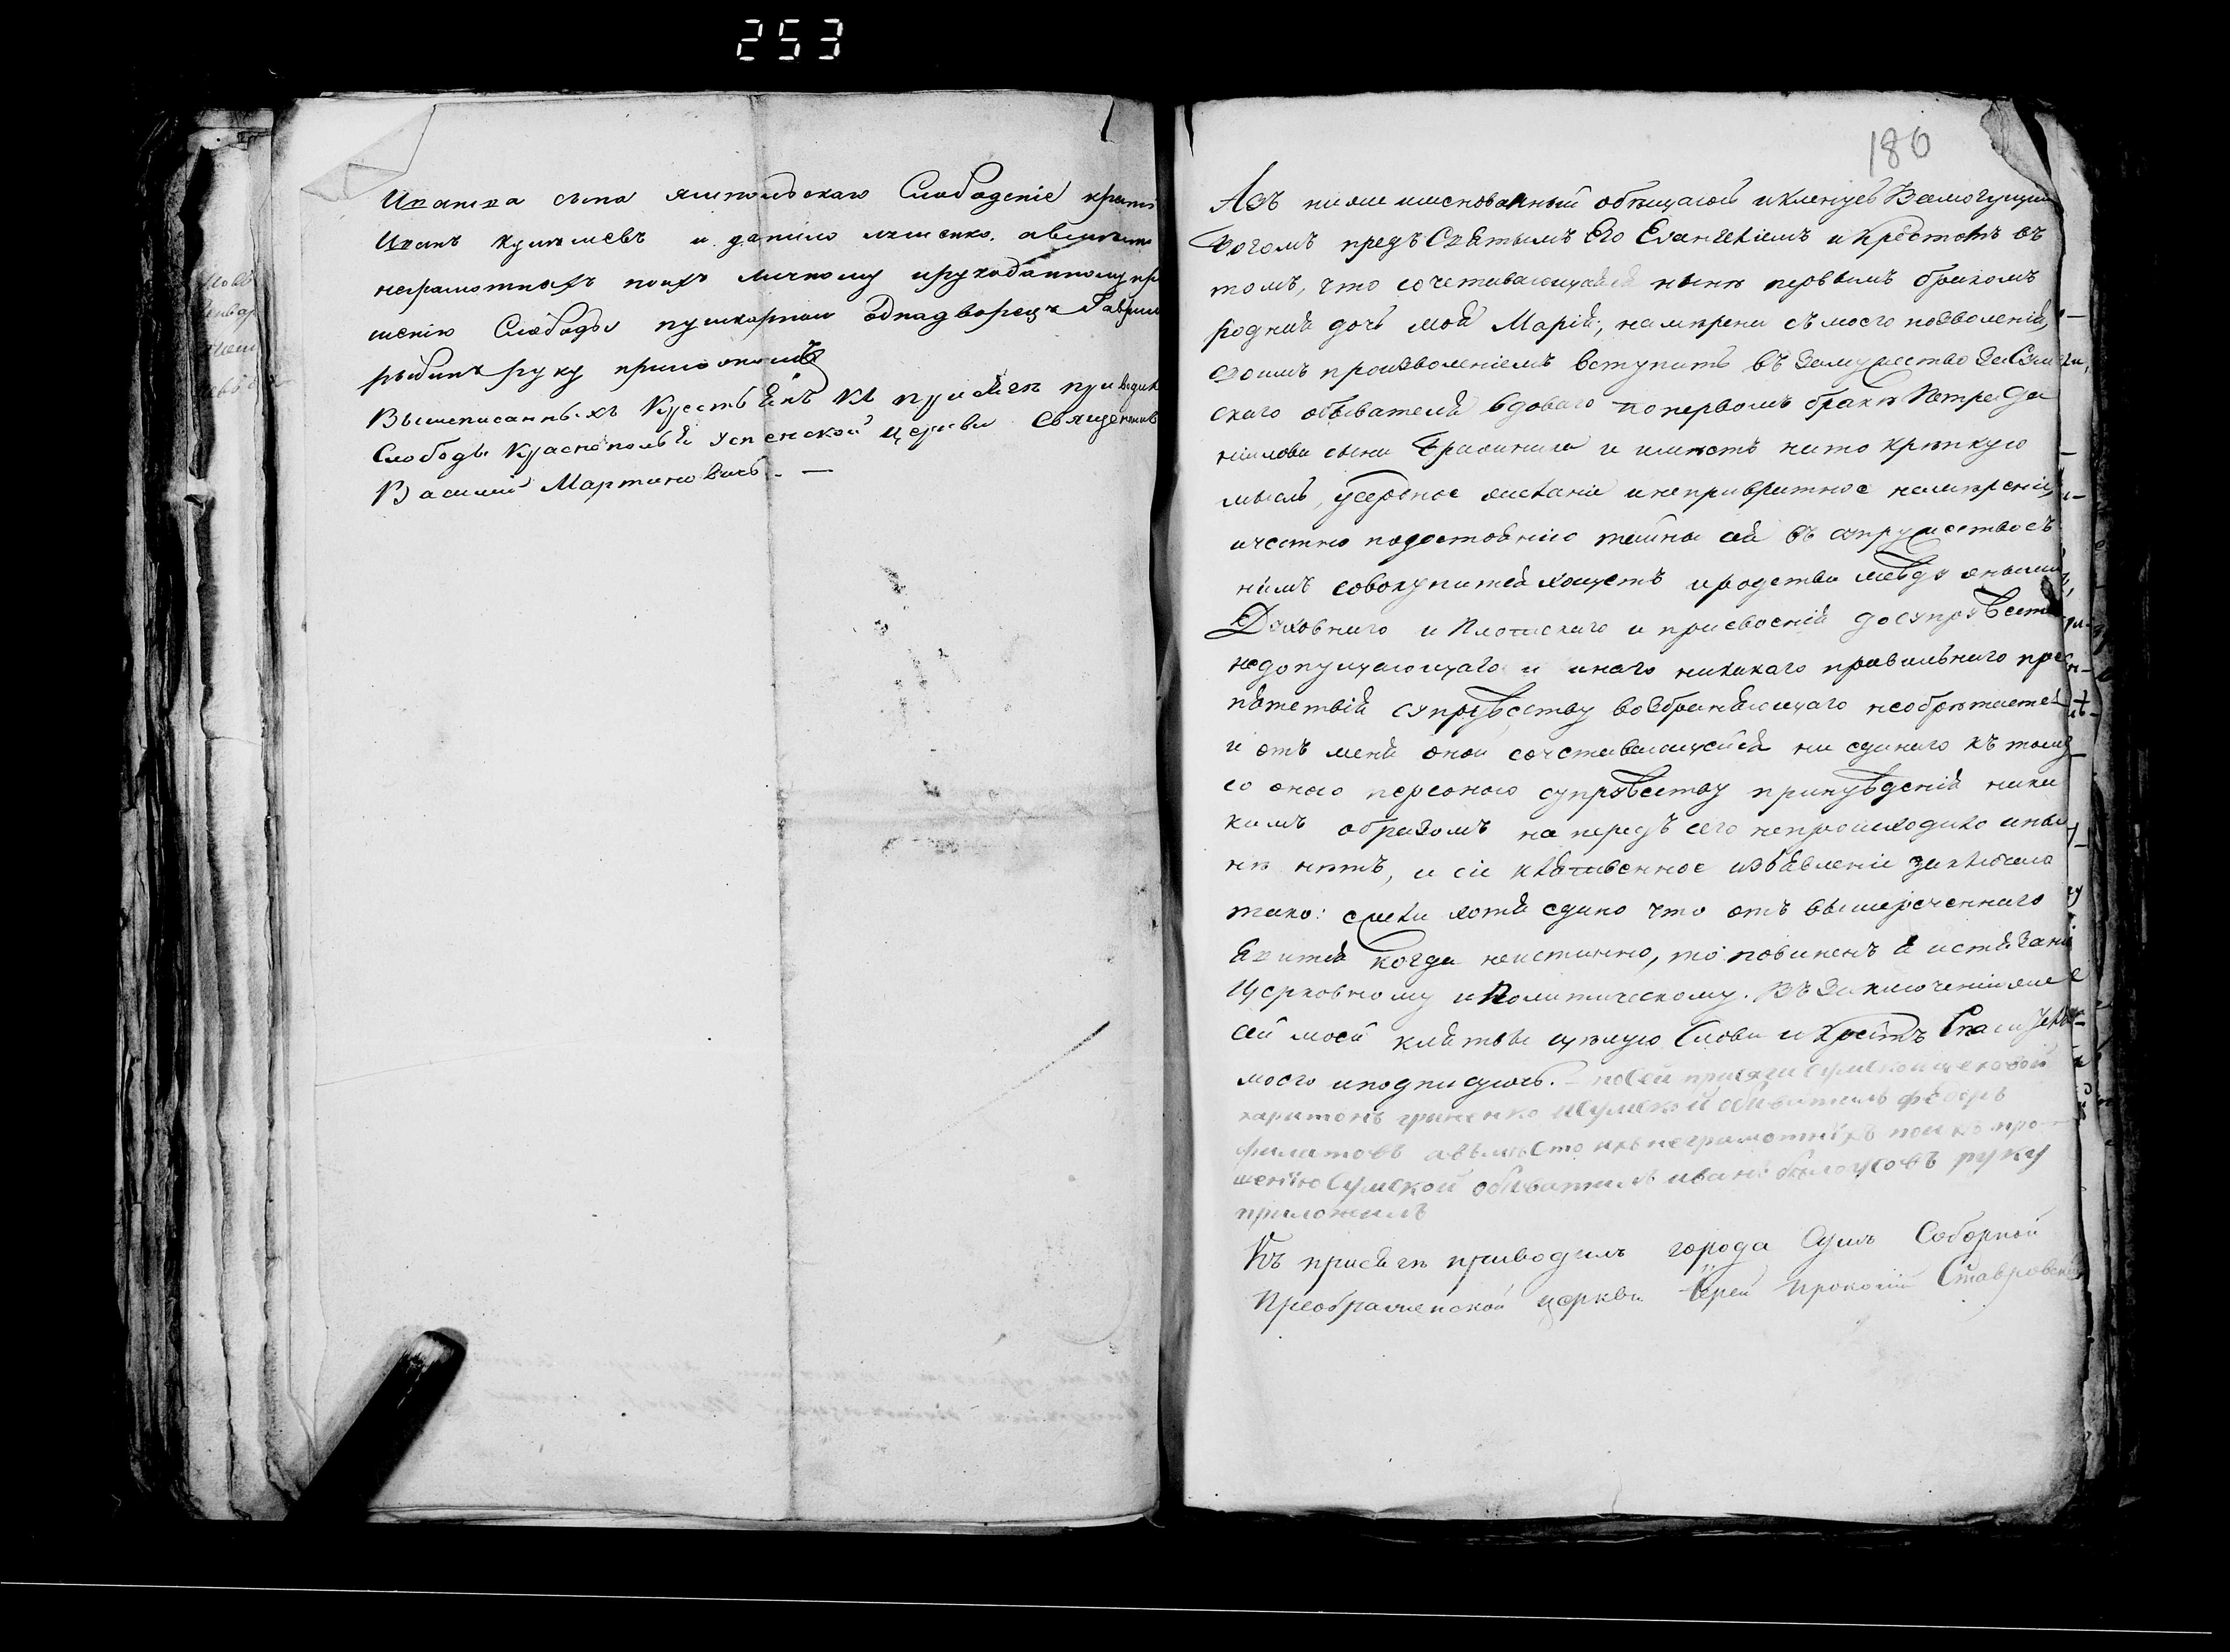 253
Ивана сына ямпольскаго Слободскіе
Иванъ и данило
неграмотныхъ поихъ личному ирукоданному пр
шенію Слободы пушкарной Однадворецъ Гаврил
рыбинъ руку приложилъ
Вышеписанныхъ Крестьянъ къ присягѣ приводилъ
Слободы Краснополья Успенской церкви Священникъ
Василій Мартиновичъ. —
180
Азъ нижеименованный обѣщаюсь икленусь Всемогущим
Богомъ предъ Святымъ Его Евангеліемъ и Крестомъ въ
томъ, что сочетавающаяся нынѣ первымъ бракомъ
родная дочь моя Марія, намѣрена съ моего позволенія,
своимъ произволеніемъ вступить въ замужество за Сум
скаго обывателя вдоваго по первомъ бракѣ Петра Да
нилова сына и имѣетъ на то крѣпкую
мысль, усердное желаніе инепривратное намѣреніе,
ичестно подостоянію тайны сей въ супружество съ
нимъ совокупится хощетъ иродства между оными,
Духовнаго и Плотскаго и присвоенія до супружества
недопущающаго и инаго никакаго правильнаго пре
пятствія супружеству возбраняющаго необрѣтается
и отъ меня оной сочетавающейся ни единаго къ тому
со оною персоною супружеству принужденія ника
кимъ образомъ на передъ сего непроисходило ины
нѣ нѣтъ, и сіе клятвенное изъявленіе заключаю
тако: ежели хотя едино что отъ вышереченнаго
явится когда неистинно, то повиненъ я истязанію
Церковному иПолитическому. Въ Заключеніиже
сей моей клятвы цѣлую Слова и Крестъ Спасителя
моего иподписуюсь. — посей присяги Сумской цеховой
харитонъ гриненко исумской обыватель федоръ
филатовъ авъмѣсто ихъ неграмотныхъ поихъ про-
шенію Сумской обыватель иванъ бѣлоусовъ руку
приложилъ
Къ присягѣ приводилъ города Сумъ Соборной
Преображенской церкви Іерей Прокопій Ставровскій